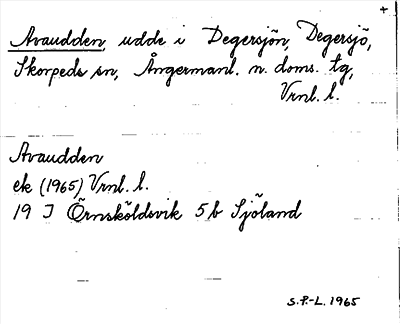 +
Avaudden, udde i Degersjön, Degersjö,
Skorpeds sn, Ångermanl. n. doms. tg,
Vrnl. l.
Avaudden
ek (1965) Vrnl. l.
19 I Örnsköldsvik 5b Sjöland
S.P.-L. 1965